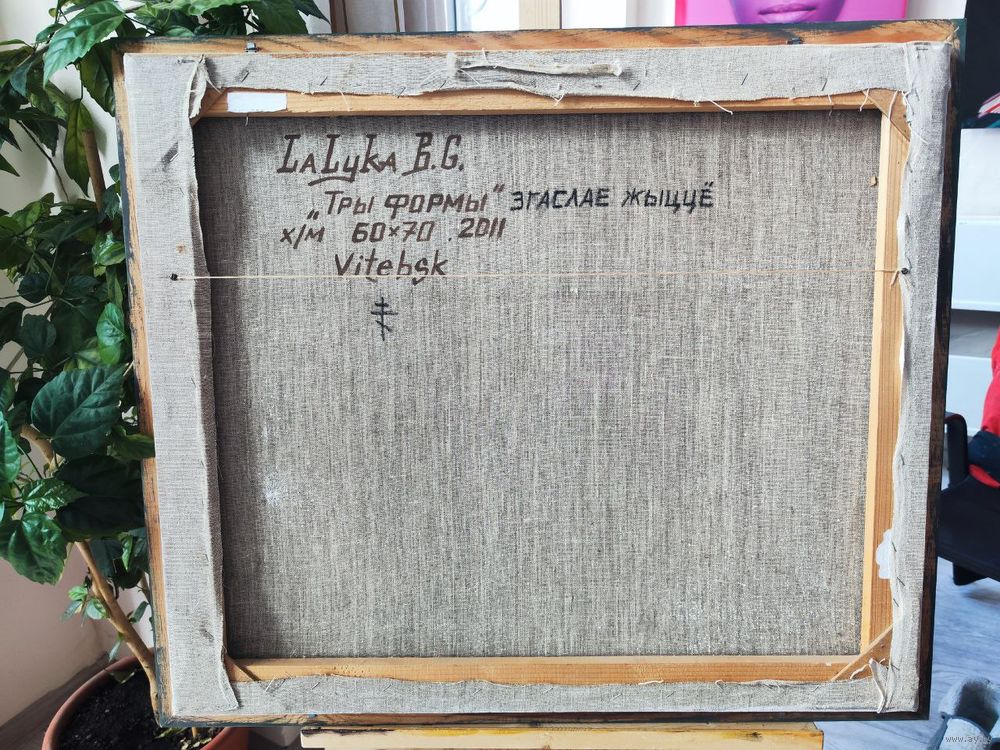 LaLyka B.G.
„Тры формы“ згаслае жыццё
х/м 60×70 .2011
Vitebsk
www.ay.by